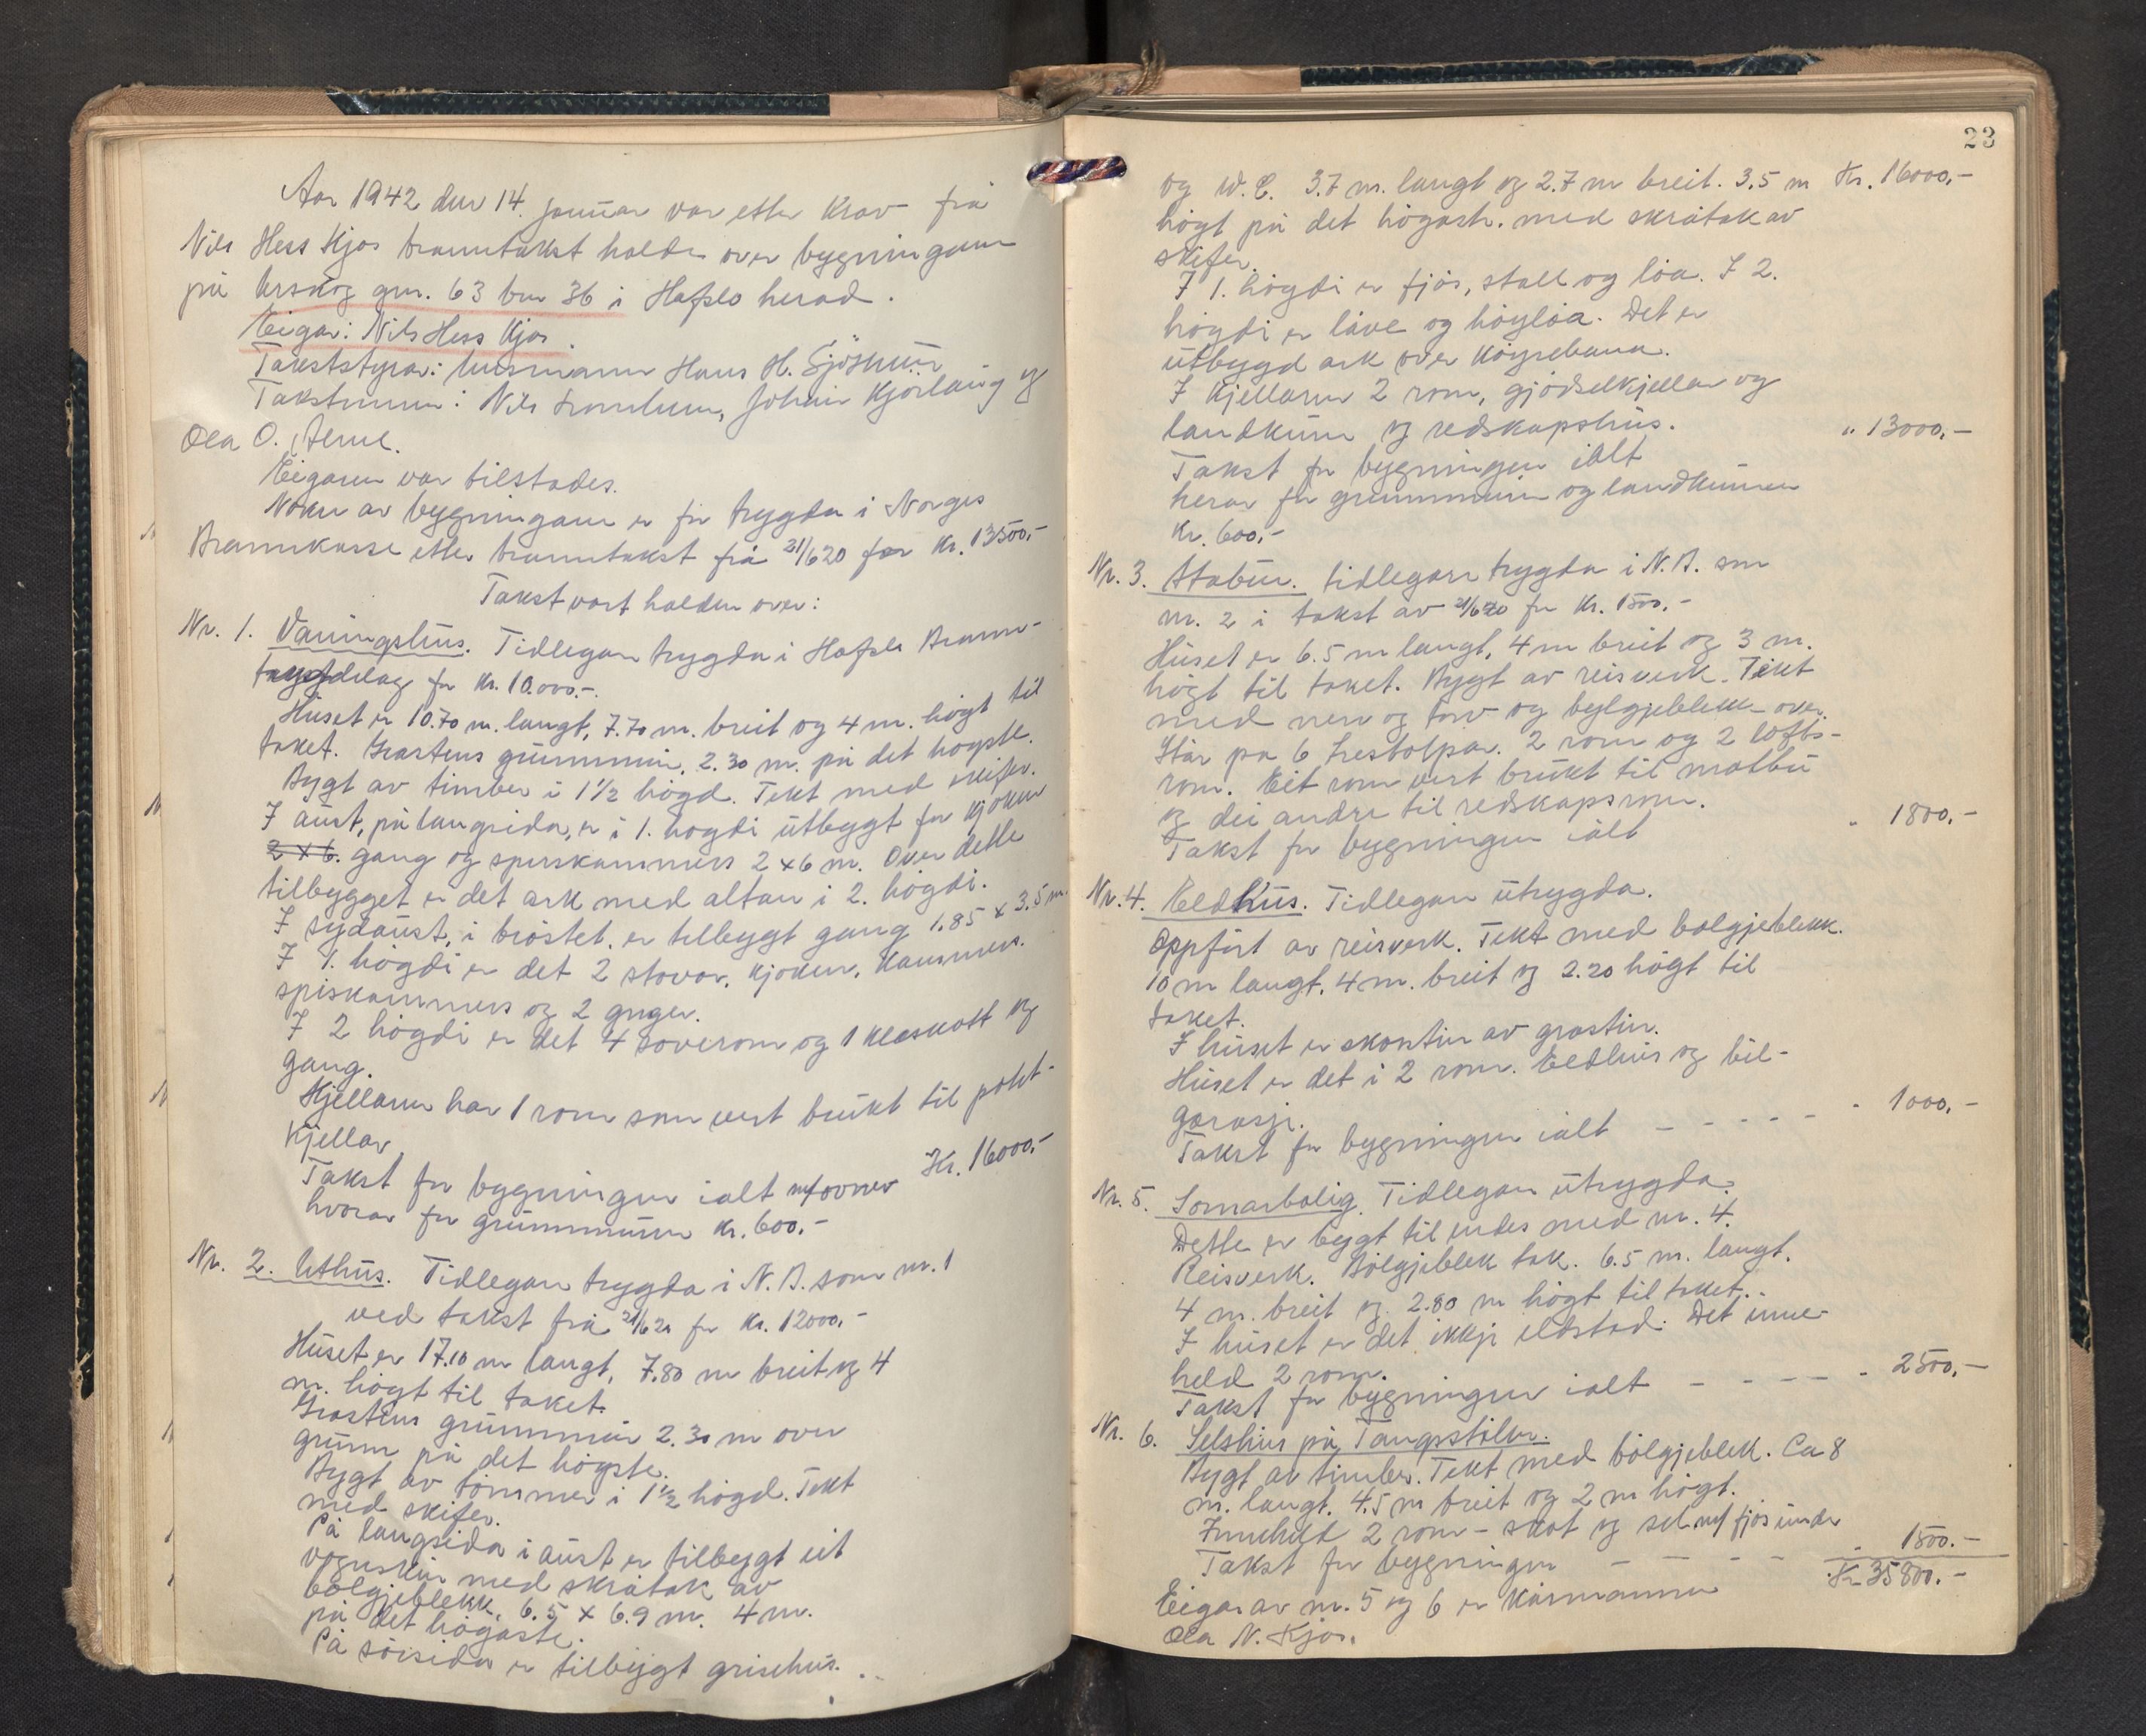 Aar 1942 den 14. januar var etter krav frå
Nils Hess Kjos branntakst haldt over bygningane
på Urskog gnr. 63 bnr 36 i Hafslo herad.
Eigar: Nils Hess Kjos.
Takststyrar: lensmann Hans H.
Takstmenn: Nils Johan Kjörlaug og
Ola O.
Eigaren var tilstades.
Noken av bygningane er för trygda i Norges
Brannkasse etter branntakst frå 21/6 20 for Kr. 13500,-
Takst vart halden over:
Nr. 1. Vaningshus. Tidlegare trygda i Hafslo Brann-
trygdelag for Kr. 10.000.-.
Huset er 10.70 m. langt, 7.70 m. breit og 4 m. högt til
taket. Grastens grunnmur, 2.30 m. på det hogste.
Bygt av timber i 1 1/2 högd. Tekt med skifer.
I aust, på langsida, er i 1. hogdi utbygt for kjöken
2 x 6. gang og spiskammers 2 x 6 m. Over dette
tilbygget er det ark med altan i 2. högdi.
I sydaust, i bröstet, er tilbygt gang 1.85 x 3.5 m.
I 1. högdi er det 2 stovor, kjoken, kammers.
spiskammers og 2 ganger.
I 2 högdi er det 4 soverom og 1 kleskott og
gang.
Kjellaren har 1 rom som vert brukt til potet-
kjellar
Takst for bygningen ialt m/ovner Kr. 16000,-
hvorav for grunnmuren kr. 600.-
Nr. 2. Uthus. Tidlegare trygda i N. B. som nr. 1
ved takst frå 21/6 20 for Kr. 12000,-
Huset er 17.10 m langt, 7.80 m breit og 4
m. högt til taket.
Grastens grunnmur 2.30 m over
grunn på det högste.
Bygt av tömmer i 1 1/2 högd. Tekt
med skifer.
På langsida i aust er tilbygt eit
vognskur med skråtak av
bölgjeblekk, 6.5 x 6.9 m. 4 m.
på det högaste.
På sörsida er tilbygt grisehus.
23
og W.C. 3.7 m. langt og 2.7 m breit. 3.5 m Kr. 16000,-
högt på det högaste. med skråtak av
skifer.
I 1. högdi er fjös, stall og löa. I 2.
högdi er låve og höyløa. Det er
utbygd ark over köyrebana.
I kjellaren 2 rom, gjödselkjellar og
landkum og redskapshus.
Takst for bygningen ialt " 13000,-
herav for grunnmuren og landkummen
Kr. 600,-
Nr. 3. Stabur. tidlegare trygda i N.B. som
nr. 2 i takst av 21/6 20 for Kr. 1500,-
Huset er 6.5 m langt, 4 m breit og 3 m.
högt til taket. Bygt av reisverk. Tekt
med never og torv og bylgjeblekk over.
Står på 6 trestolpar. 2 rom og 2 lofts-
rom. Eit rom vert brukt til matbu
og dei andre til redskapsrom.
Takst for bygningen ialt " 1800,-
Nr. 4. Eldhus. Tidlegare utrygda.
Oppfört av reisverk. Tekt med bolgjeblekk.
10 m langt, 4 m. breit og 2.20 högt til
taket.
I huset er skorstin av grastin.
Huset er det i 2 rom. Eldhus og bil-
garasje.
Takst for bygningen ialt - - - - - " 1000,-
Nr. 5. Somarbolig. Tidlegare utrygda.
Dette er bygt til endes med nr. 4.
Reisverk. Bölgjeblek tak. 6.5 m. langt.
4 m. breit og 2.80 m högt til taket.
I huset er det ikkje eldstad. Det inne-
held 2 rom.
Takst for bygningen ialt - - - - - " 2500,-
Nr. 6. Selshus på Tangstölen.
Bygt av timber. Tekt med bölgjeblek. Ca 8
m. langt. 4.5 m breit og 2 m högt.
Inneheld 2 rom - skot og sel m/ fjos under
Takst for bygningen - - - - " 1500.-
Kr 35800.-
Eigar av nr. 5 og 6 er kårmannen
Ola N. Kjos.